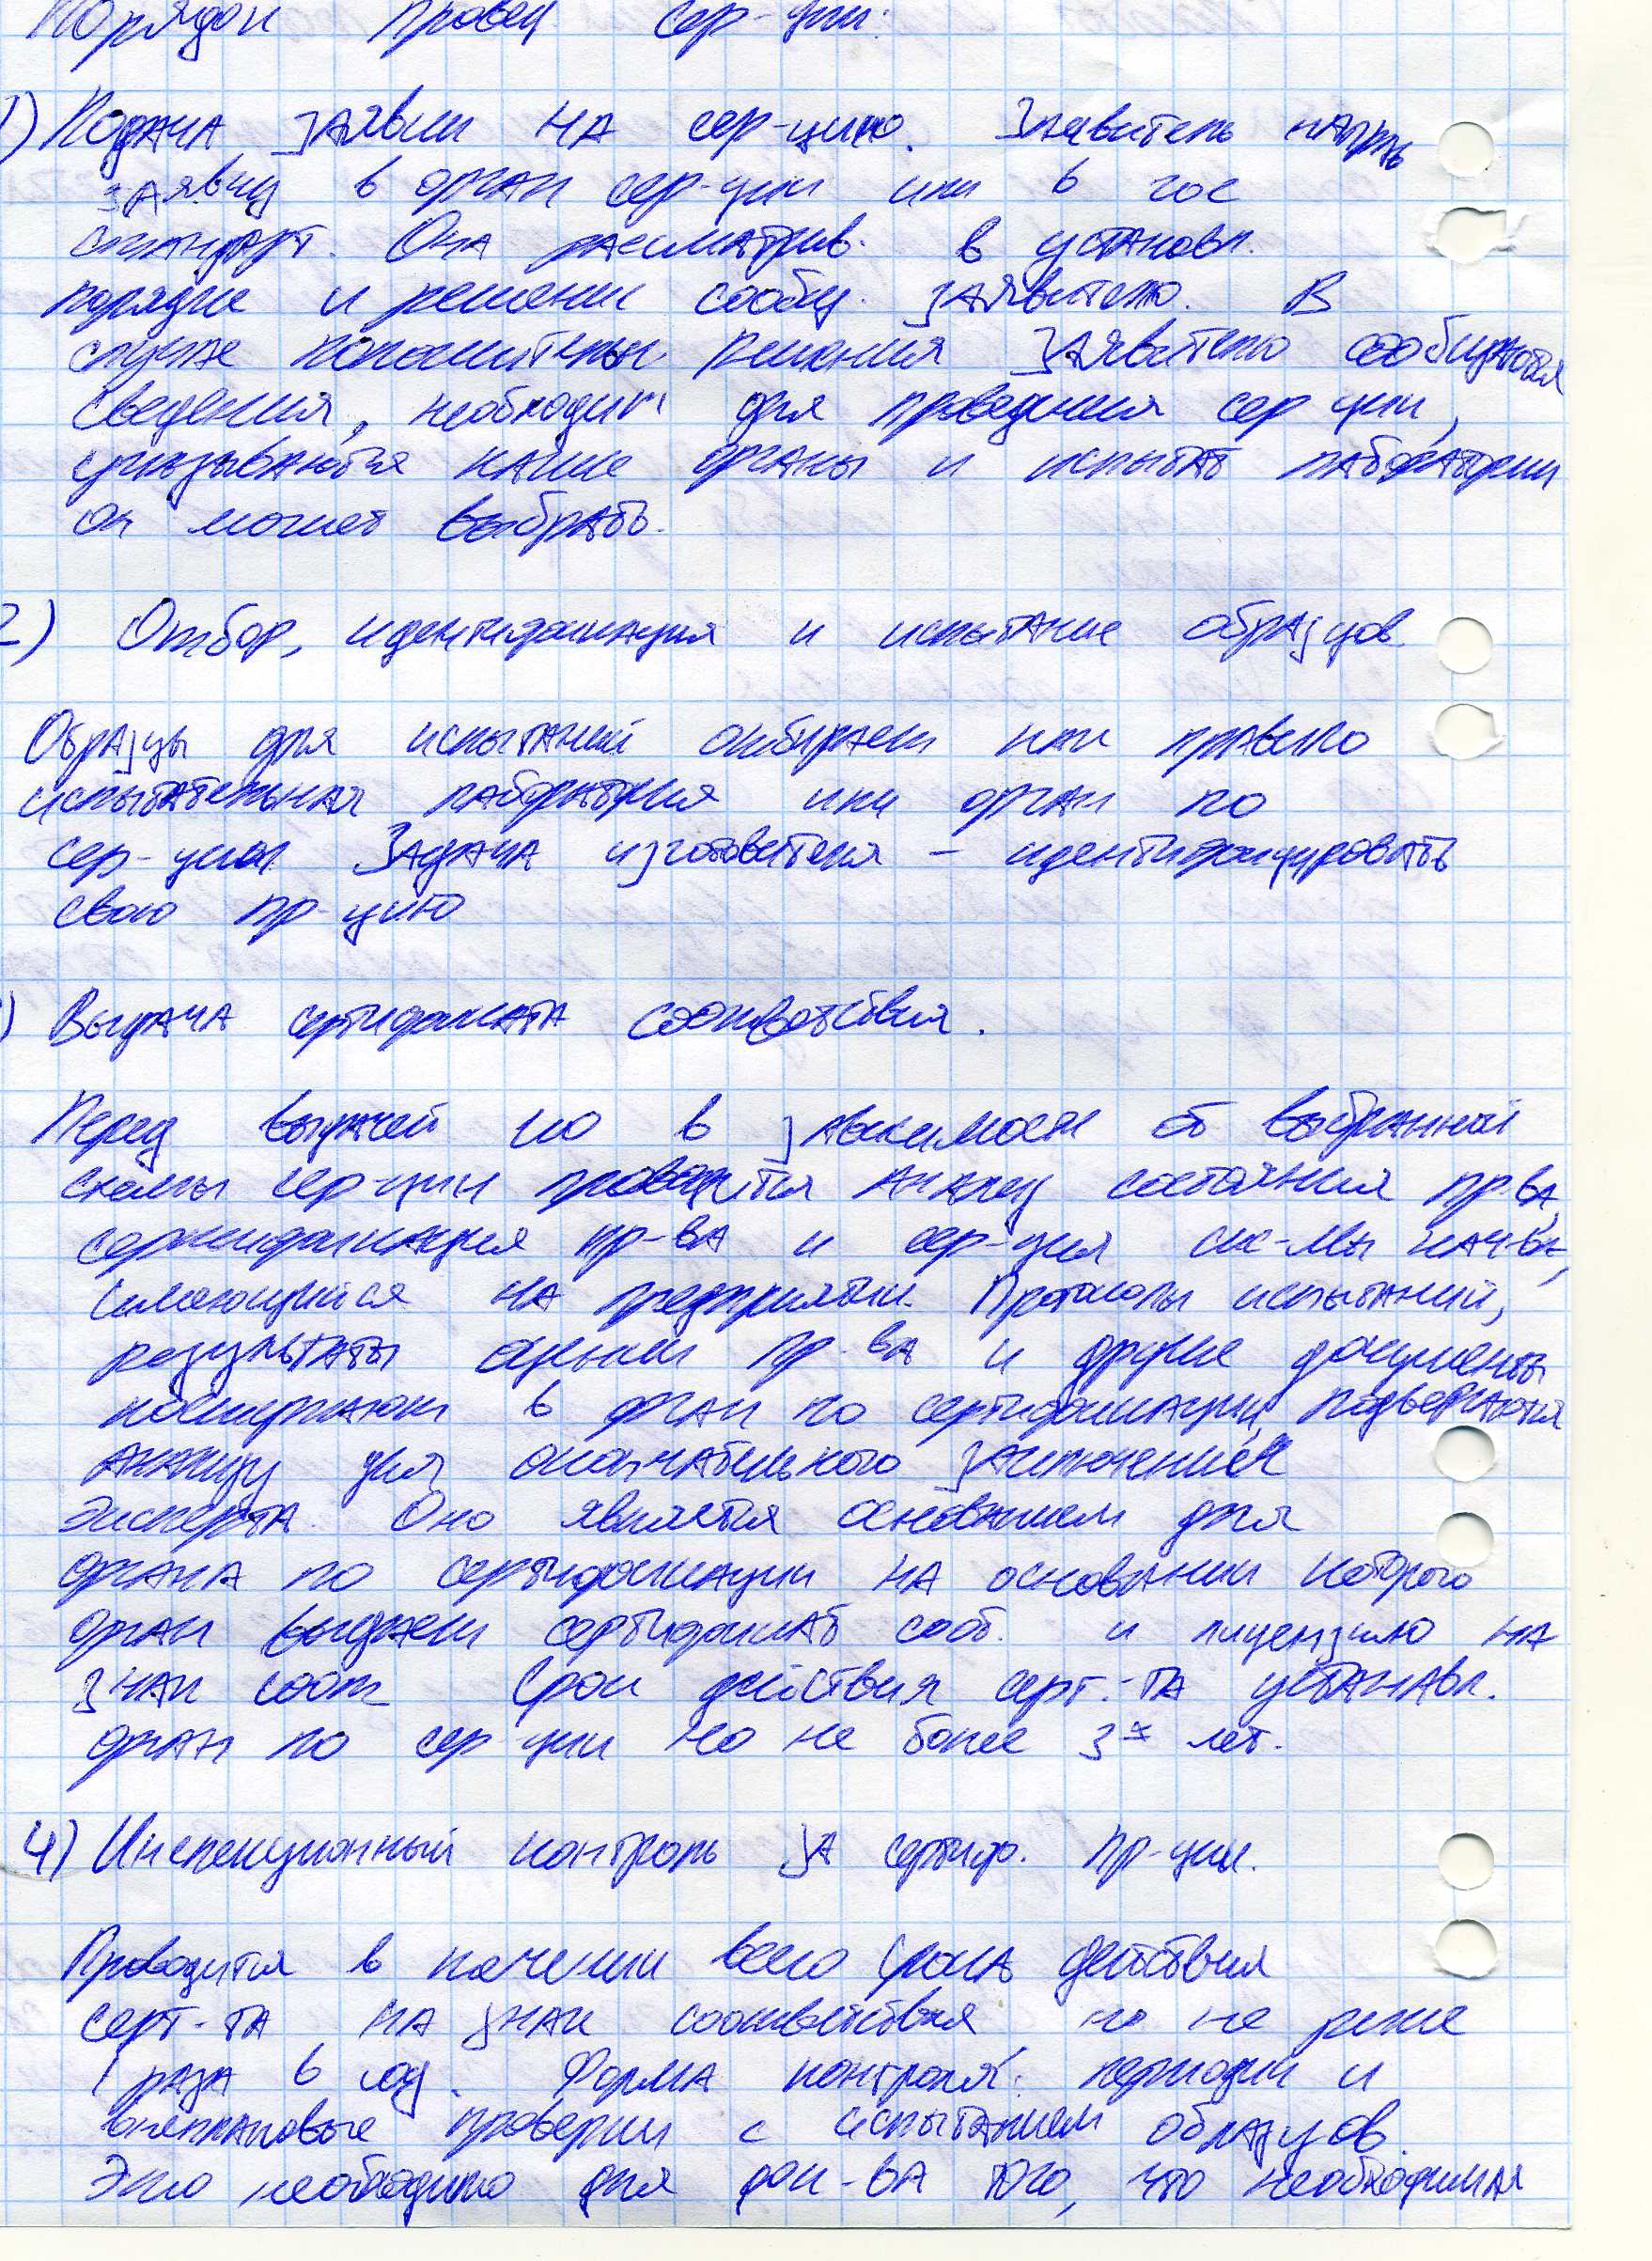 Порядок провед сер-ции:
1) Подача заявки на сер-цию. Заявитель напр-ть
заявку в орган сер-ции или в гос
стандарт. Она рассматрив. в установл.
порядке и решение сообщ. заявителю. В
случае положительн. решения заявителю сообщаются
сведения, необходим для проведения сер ции,
указываются какие органы и испытат лаборатории
он может выбрать.
2) Отбор, идентификация и испытание образцов
Образцы для испытаний отбирает как правило
испытательная лаборатория или орган по
сер-ции. Задача изготовителя - идентифицировать
свою пр-цию
) Выдача сертификата соответствия.
Перед выдачей но в зависимости от выбранной
схемы сер-ции проводится анализ состояния пр-ва,
сертификация пр-ва и сер-ция сис-мы кач-ва,
имеющийся на предприятии. Протоколы испытаний,
результаты оценки пр-ва и другие документы
поступают в орган по сертификации, подвергаются
анализу для окончательного заключения
эксперта. Оно является основанием для
органа по сертификации на основании которого
орган выдает сертификат соот. и лицензию на
знак соот Срок действия серт.-та установл.
орган по сер ции но не более 3х лет.
4) Инспекционный контроль за сертиф. пр-ции.
Проводится в течении всего срока действия
серт-та на знак соответствия но не реже
1 раза в год. Форма контроля: периодич и
внеплановые проверки с испытанием образцов.
Это необходимо для док-ва того, что необходимая